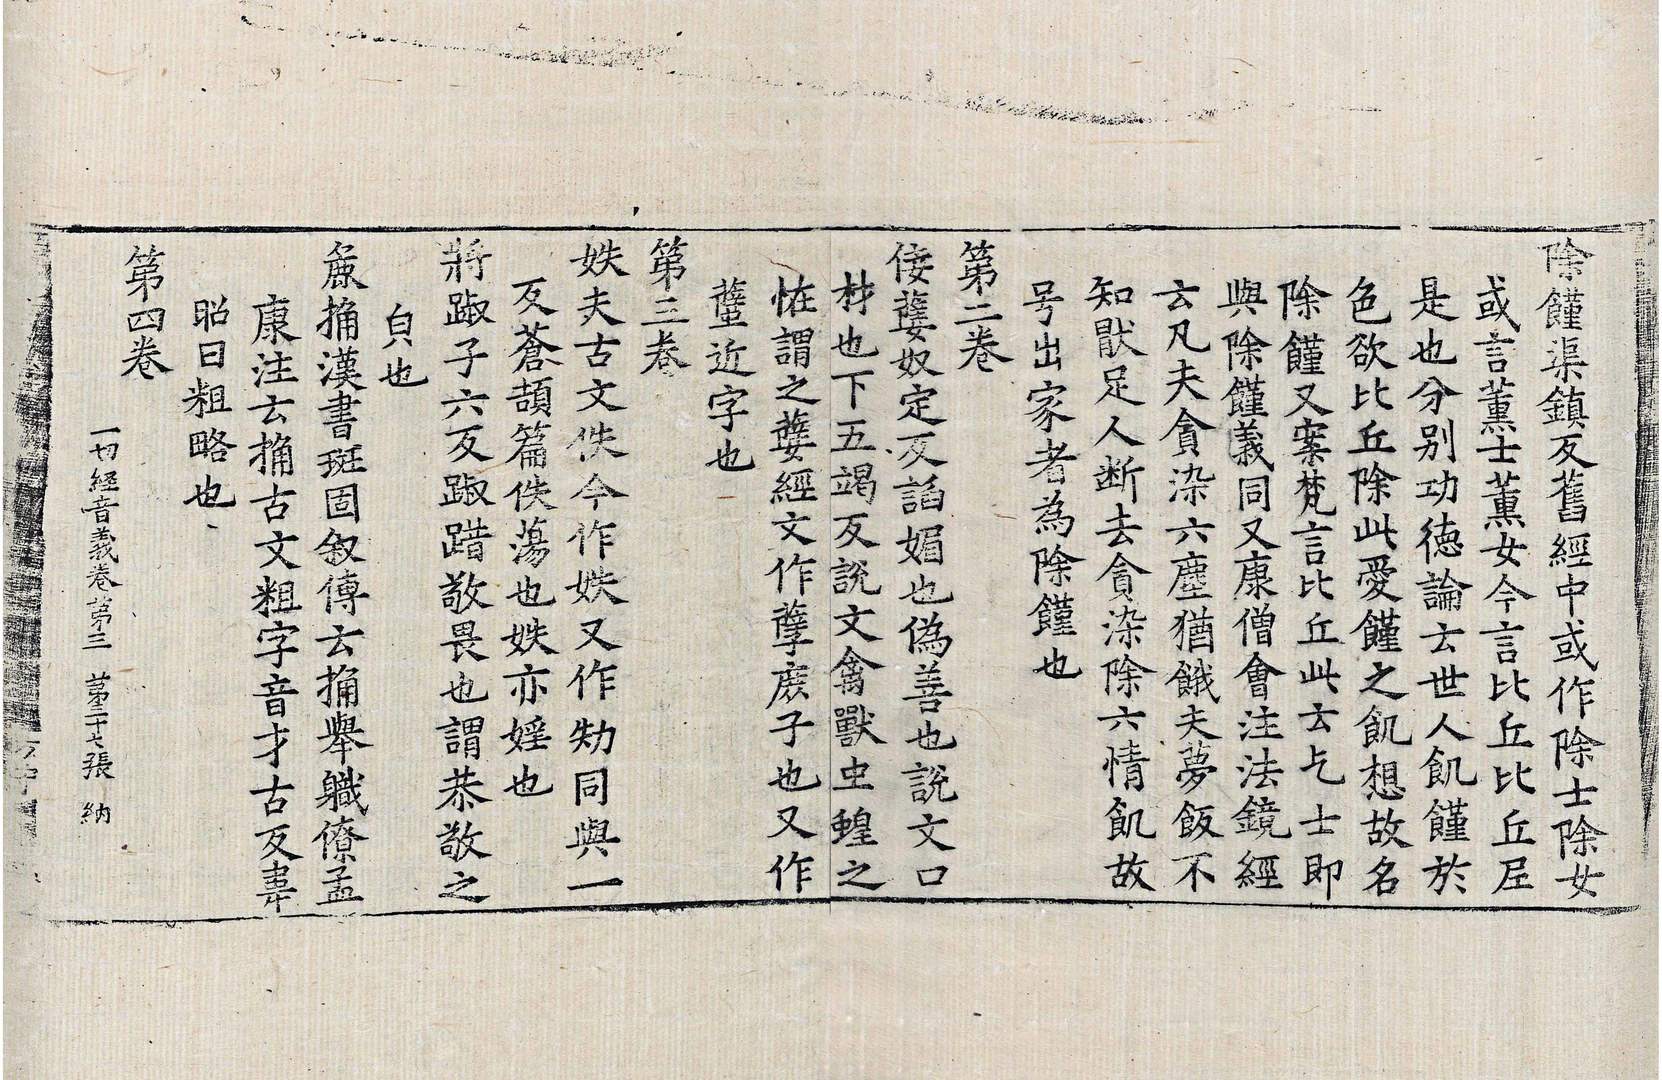 除饉渠鎮反舊經中或作除士除女
或言薰士薰女今言比丘比丘尼
是也分別功德論云世人飢饉於
色欲比丘除此愛饉之飢想故名
除饉又案梵言比丘此云乞士即
與除饉義同又康僧會注法鏡經
云凡夫貪染六塵猶餓夫夢飯不
知猒足人斷去貪染除六情飢故
号出家者為除饉也
第二卷
佞孽奴定反諂媚也偽善也說文口
材也下五竭反說文禽獸虫蝗之
恠謂之孽經文作孽庶子也又作
蠥近字也
第三卷
妷夫古文佚今作妷又作劮同與一
反蒼頡篇佚蕩也妷亦婬也
將踧子六反踧踖敬畏也謂恭敬之
皃也
麁捔漢書班固叙傳云捔舉軄僚孟
康注云捔古文粗字音才古反韋
昭曰粗略也
第四卷
一切經音義卷第三 第二十七張 納